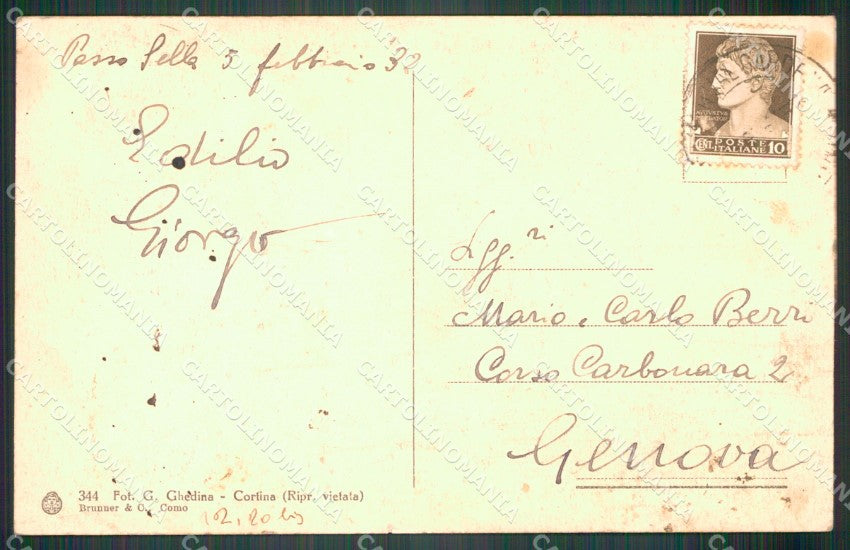 Passo Sella 5 febbraio 32
Edilio
Giorgio
AVGVSTVS
POSTE
CENT. ITALIANE 10
GARDENA
Sigg.ri
Mario e Carlo Berri
Corso Carbonara 2
Genova
344 Fot. G. Ghedina - Cortina (Ripr. vietata)
Brunner & C. Como
CARTOLINOMANIA